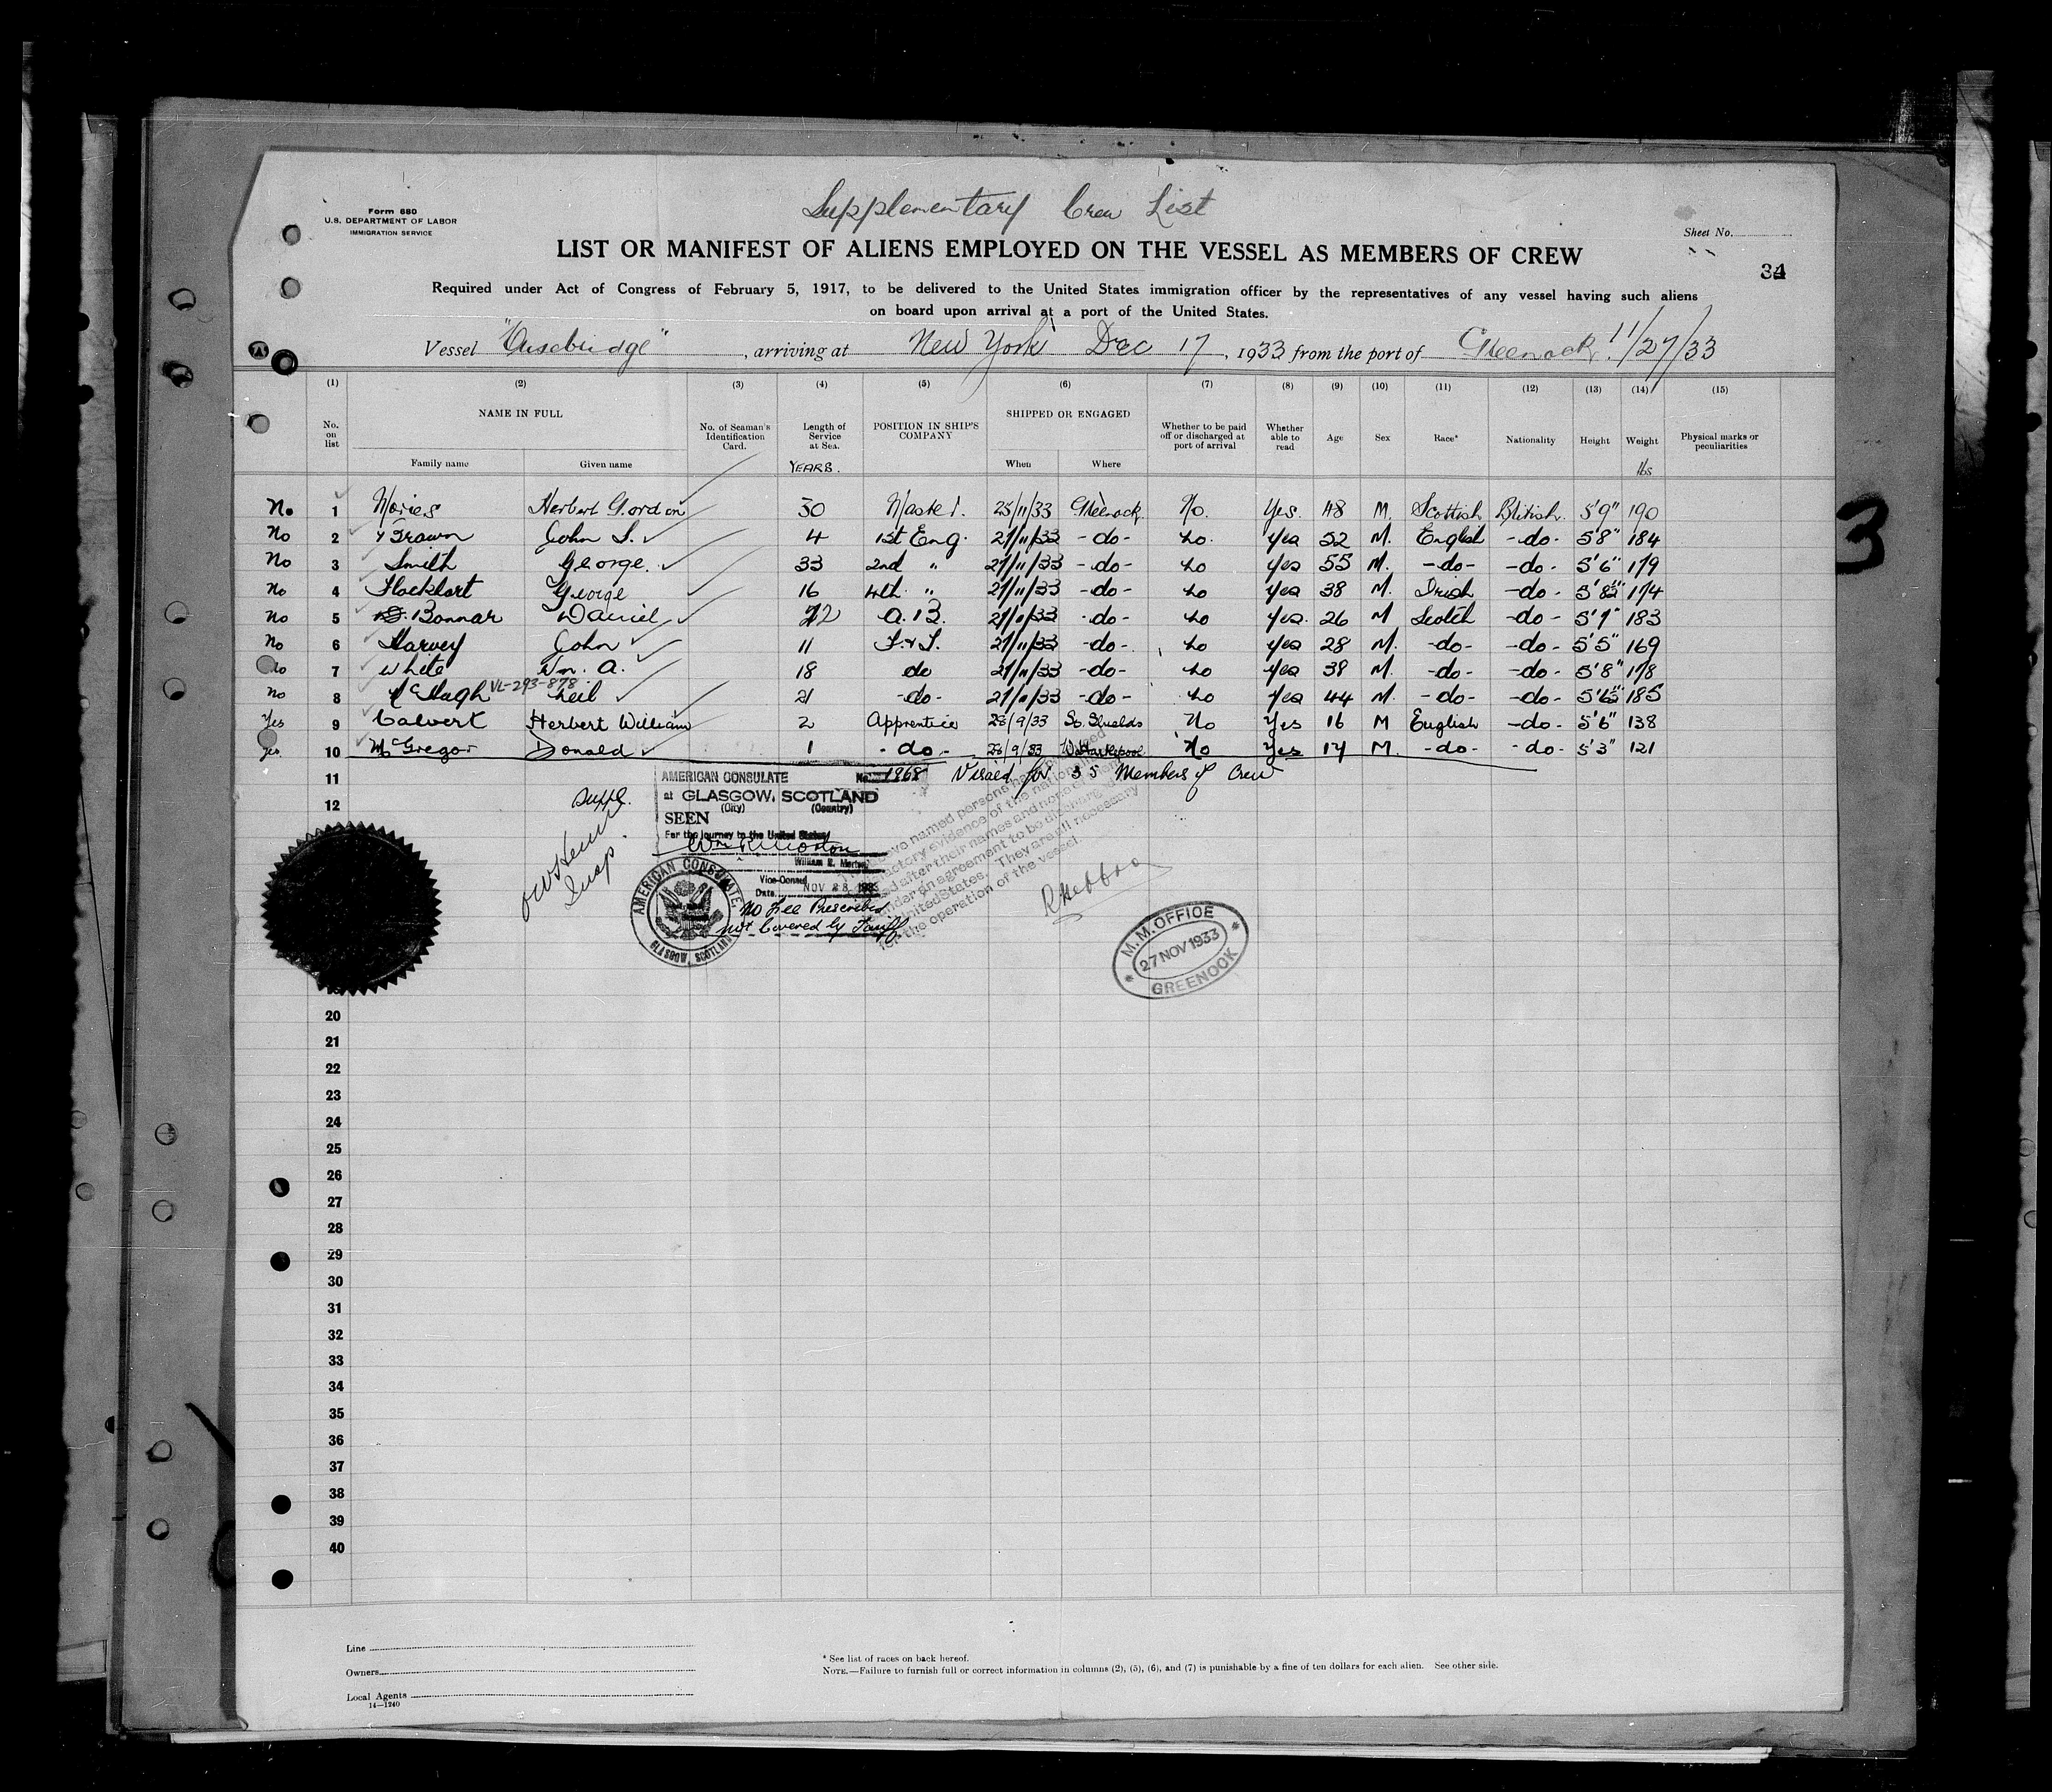 Supplementary Crew List
Form 680
U.S. DEPARTMENT OF LABOR
IMMIGRATION SERVICE
Sheet No.
LIST OR MANIFEST OF ALIENS EMPLOYED ON THE VESSEL AS MEMBERS OF CREW
34
Required under Act of Congress of February 5, 1917, to be delivered to the United States immigration officer by the representatives of any vessel having such aliens
on board upon arrival at a port of the United States.
Vessel "Ousebridge", arriving at New York Dec 17, 1933 from the port of Greenock. 11/27/33
(1) (2) (3) (4) (5) (6) (7) (8) (9) (10) (11) (12) (13) (14) (15)
No. on list NAME IN FULL Family name Given name No. of Seaman's Identification Card. Length of Service at Sea. YEARS. POSITION IN SHIP'S COMPANY SHIPPED OR ENGAGED When Where Whether to be paid off or discharged at port of arrival Whether able to read Age Sex Race* Nationality Height Weight lbs Physical marks or peculiarities
No. 1 Nories Herbert Gordon 30 Master. 25/11/33 Greenock No. Yes. 48 M. Scottish British. 5'9" 190
No 2 Brown John S. 4 1st Eng. 27/11/33 -do- No. Yes 52 M. English -do- 5'8" 184
No 3 Smith George. 33 2nd " 27/11/33 -do- No Yes 55 M. -do- -do- 5'6" 179
No 4 Flockhart George 16 4th " 27/11/33 -do- No Yes 38 M. Irish -do- 5'8½" 174
No 5 Bonnar Daniel 12 A.B. 27/11/33 -do- No Yes. 26 M Scotch -do- 5'7" 183
No 6 Harvey John 11 F.&T. 27/11/33 -do- No Yes 28 M. -do- -do- 5'5" 169
No 7 White Wm. A. 18 do 27/11/33 -do- No Yes 38 M. -do- -do- 5'8" 178
VL-293-878
No 8 McHugh Neil 21 -do- 27/11/33 -do- No Yes 44 M. -do- -do- 5'6½" 185
Yes 9 Calvert Herbert William 2 Apprentice 28/9/33 So. Shields No Yes 16 M English -do- 5'6" 138
Yes. 10 McGregor Donald 1 -do- 28/9/33 W. Hartlepool No Yes 17 M. -do- -do- 5'3" 121
3
11
AMERICAN CONSULATE No. 1868 Visaed for 35 Members of Crew
at GLASGOW, SCOTLAND
(City) (Country)
12
Suppl.
SEEN
For the journey to the United States
Wm R Morton
William R. Morton
Vice-Consul
Date NOV 28 1933
No Fee Prescribed
not Covered by Tariff
AMERICAN CONSULATE, GLASGOW, SCOTLAND
Insp.
named persons
satisfactory evidence of the nationalities
after their names and none of them
under an agreement to be discharged
United States. They are all necessary
for the operation of the vessel.
M.M. OFFICE
27 NOV 1933
GREENOCK
20
21
22
23
24
25
26
27
28
29
30
31
32
33
34
35
36
37
38
39
40
Line
Owners
Local Agents
14—1240
* See list of races on back hereof.
NOTE.—Failure to furnish full or correct information in columns (2), (5), (6), and (7) is punishable by a fine of ten dollars for each alien. See other side.